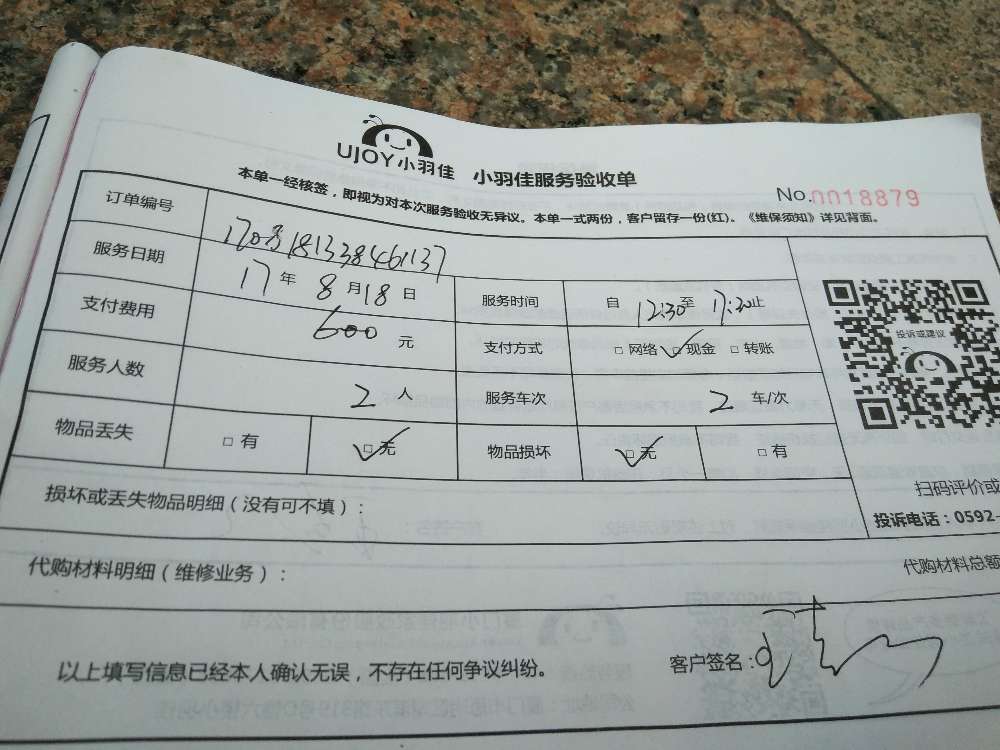 UJOY小羽佳 小羽佳服务验收单
No.0018879
本单一经核签，即视为对本次服务验收无异议。本单一式两份，客户留存一份(红)。《维保须知》详见背面。
订单编号
服务日期 17年8月18日 服务时间 自12:30至17:30止
支付费用 600元 支付方式 □网络 □现金 □转账
服务人数 2人 服务车次 2车/次
物品丢失 □有 □无 物品损坏 □无 □有
投诉或建议
扫码评价或
损坏或丢失物品明细（没有可不填）：
投诉电话：0592-
代购材料明细（维修业务）：
代购材料总额
以上填写信息已经本人确认无误，不存在任何争议纠纷。
客户签名：